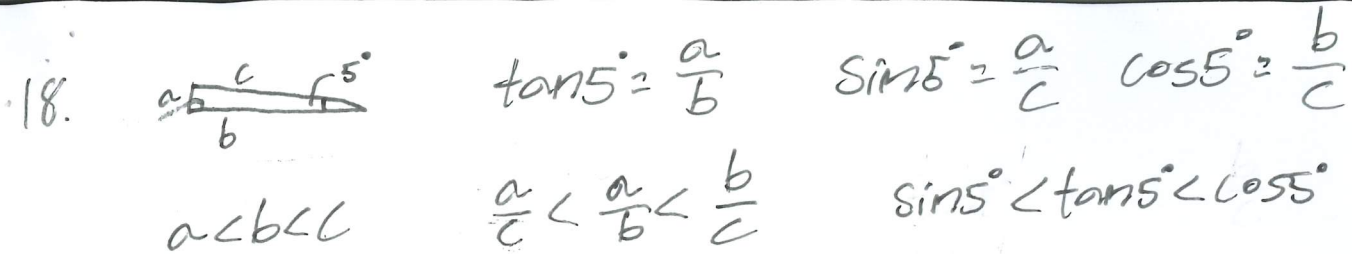 18. c 5° a b tan5° = a/b sin5° = a/c cos5° = b/c
a<b<c a/c < a/b < b/c sin5° < tan5° < cos5°